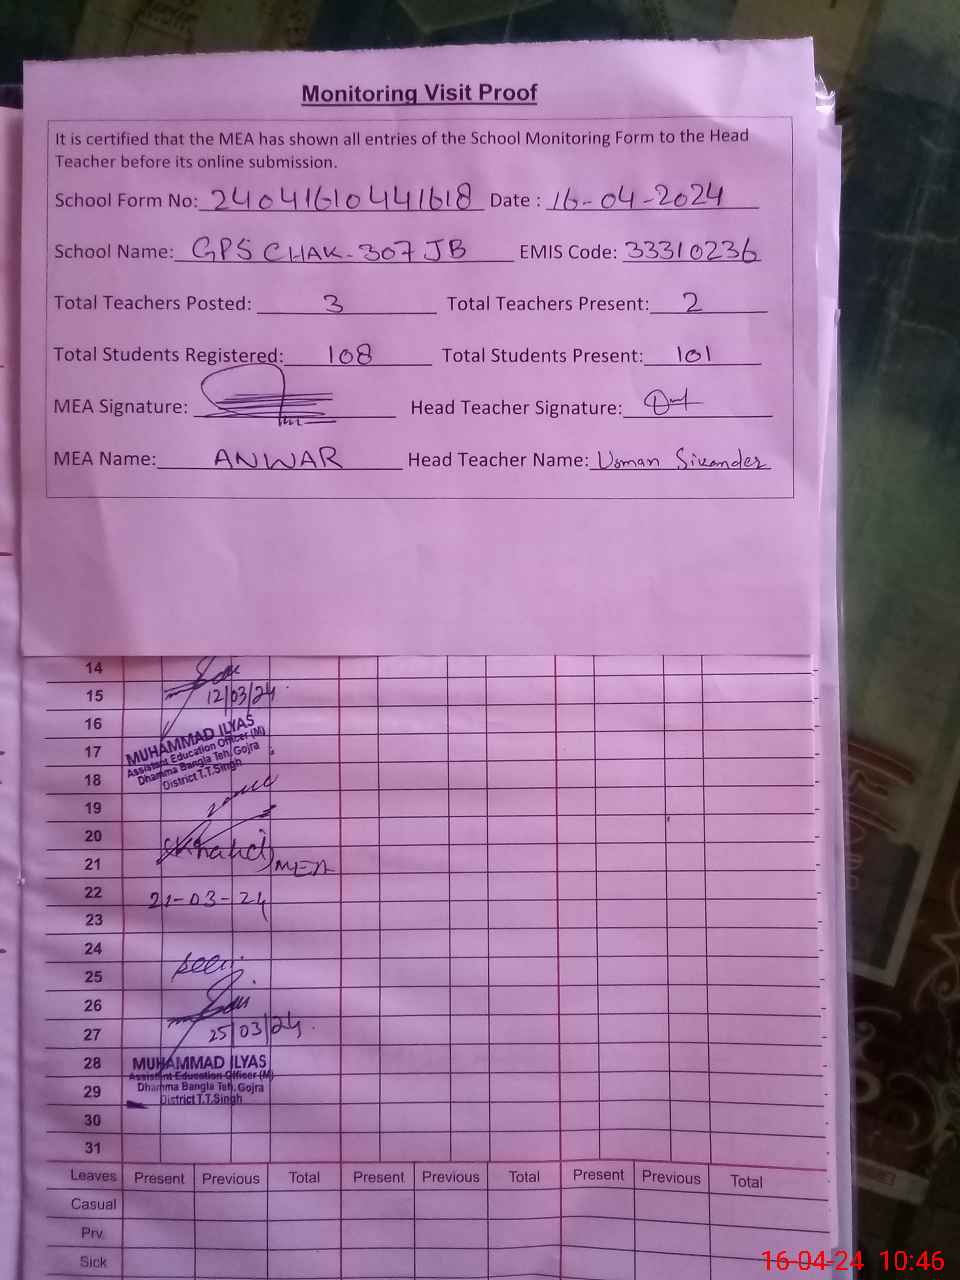 Monitoring Visit Proof
It is certified that the MEA has shown all entries of the School Monitoring Form to the Head
Teacher before its online submission.
School Form No: 24041610441618 Date : 16-04-2024
School Name: GPS CHAK-307 JB EMIS Code: 33310236
Total Teachers Posted: 3 Total Teachers Present: 2
Total Students Registered: 108 Total Students Present: 101
MEA Signature: Head Teacher Signature:
MEA Name: ANWAR Head Teacher Name: Usman Sikander
14
15 12/03/24
16
MUHAMMAD ILYAS
17 Assistant Education Officer (M)
Dhamma Bangla Teh, Gojra
18 District T.T.Singh
19
20
21 MEA
22 21-03-24
23
24
25 seen
26
27 25/03/24
28 MUHAMMAD ILYAS
Assistant Education Officer (M)
29 Dhamma Bangla Teh, Gojra
District T.T.Singh
30
31
Leaves Present Previous Total Present Previous Total Present Previous Total
Casual
Prv.
Sick
16-04-24 10:46